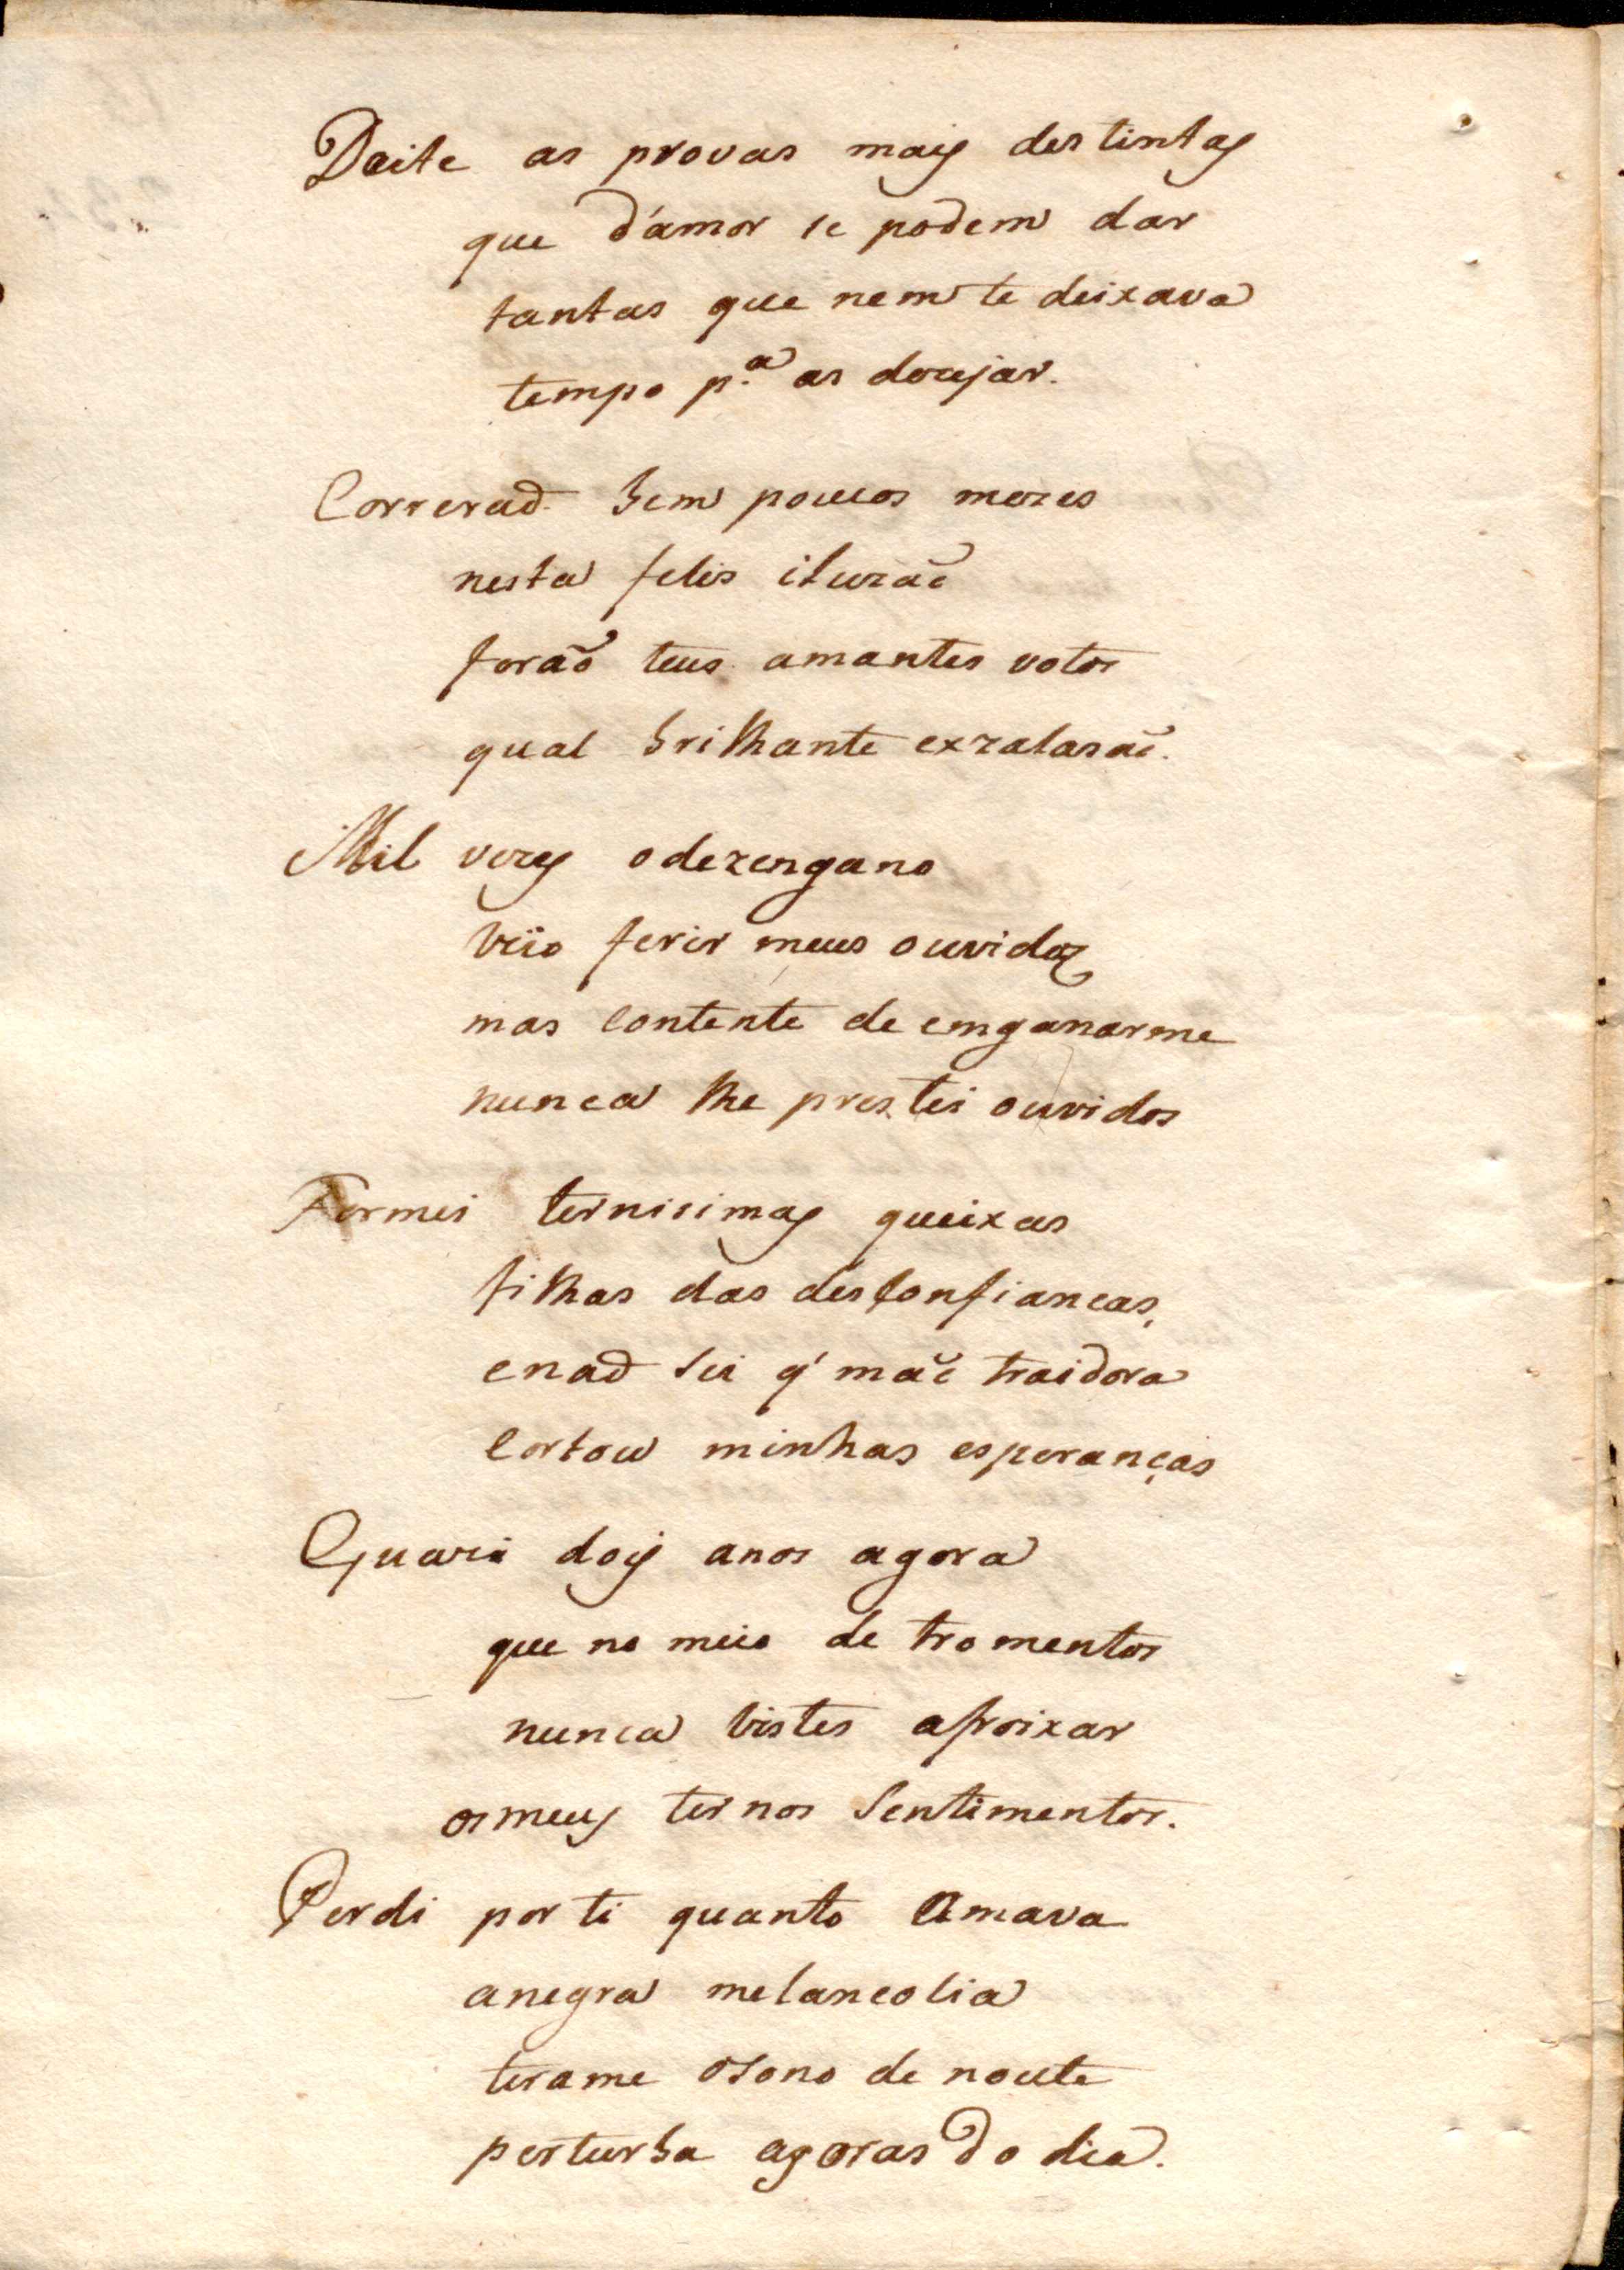 Deite as provas mais destintas
que d'amor se podem dar
tantas que nem te deixava
tempo p.ª as dezejar.
Correraõ bem poucos mezes
nesta felis iluzaõ
foraõ teus amantes votos
qual brilhante exzalasaõ.
Mil vezes o dezengano
veio ferir meus ouvidos
mas contente de emganarme
nunca lhe prestei ouvidos
Formei ternisimas queixas
filhas das desconfiancas,
enaõ sei q' maõ traidora
cortou minhas esperanças
Quazi dois anos agora
que no meio de tromentos
nunca vistes afroixar
os meus ternos sentimentos.
Perdi por ti quanto Amava
anegra melancolia
tirame osono de noute
perturba as oras do dia.